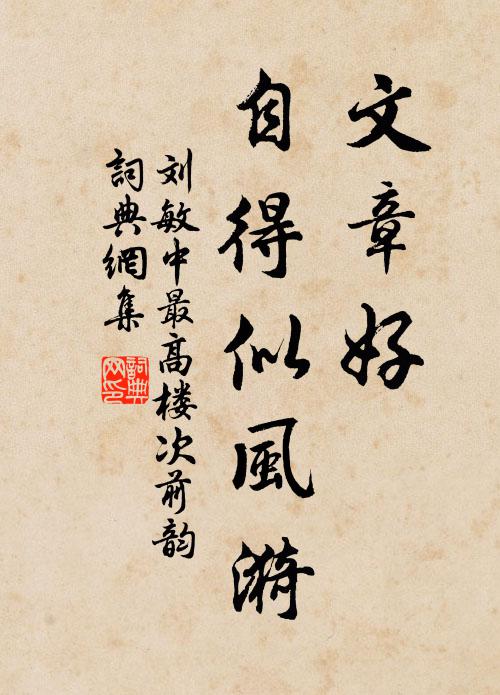 文章好
自得似風漪
刘敏中最高楼次前韵
詞典網集
詞典
网印